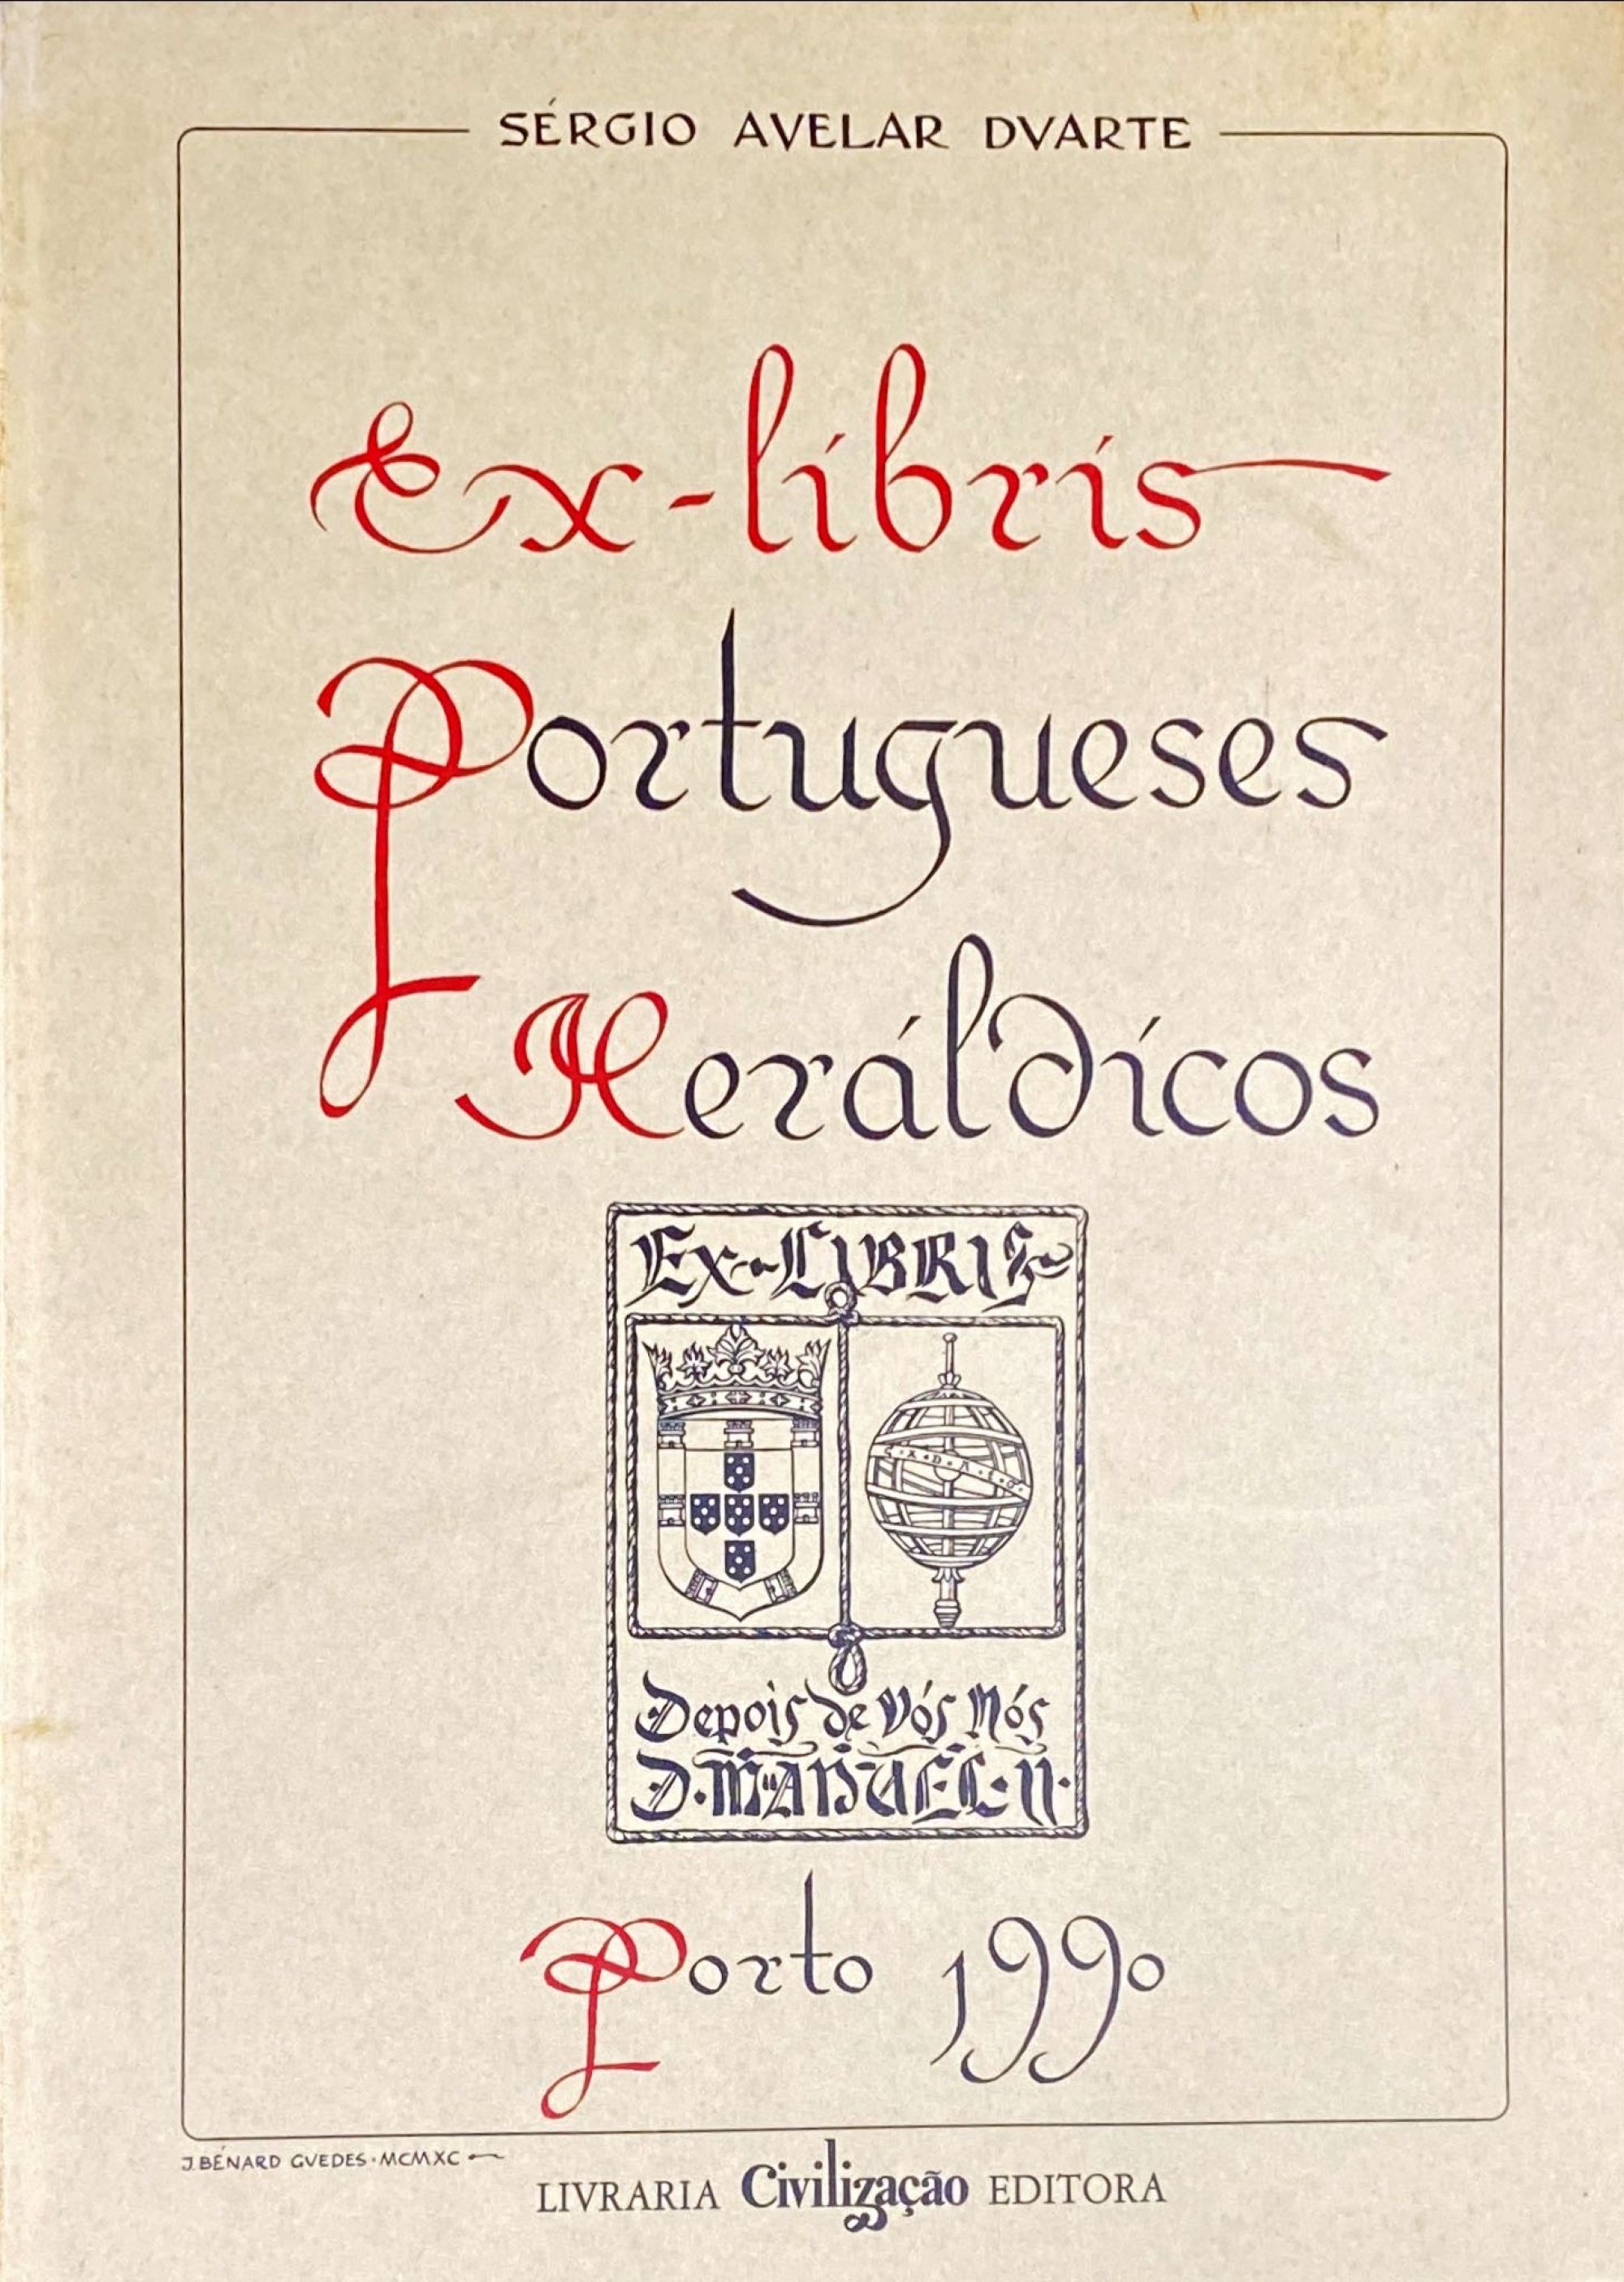 SÉRGIO AVELAR DVARTE
Ex-líbrís
Portugueses
Heráldícos
EX-LIBRIS
Depois de Vós Nós
D. MANUEL. II.
Porto 1990
J. BÉNARD GVEDES · MCMXC
LIVRARIA Civilização EDITORA